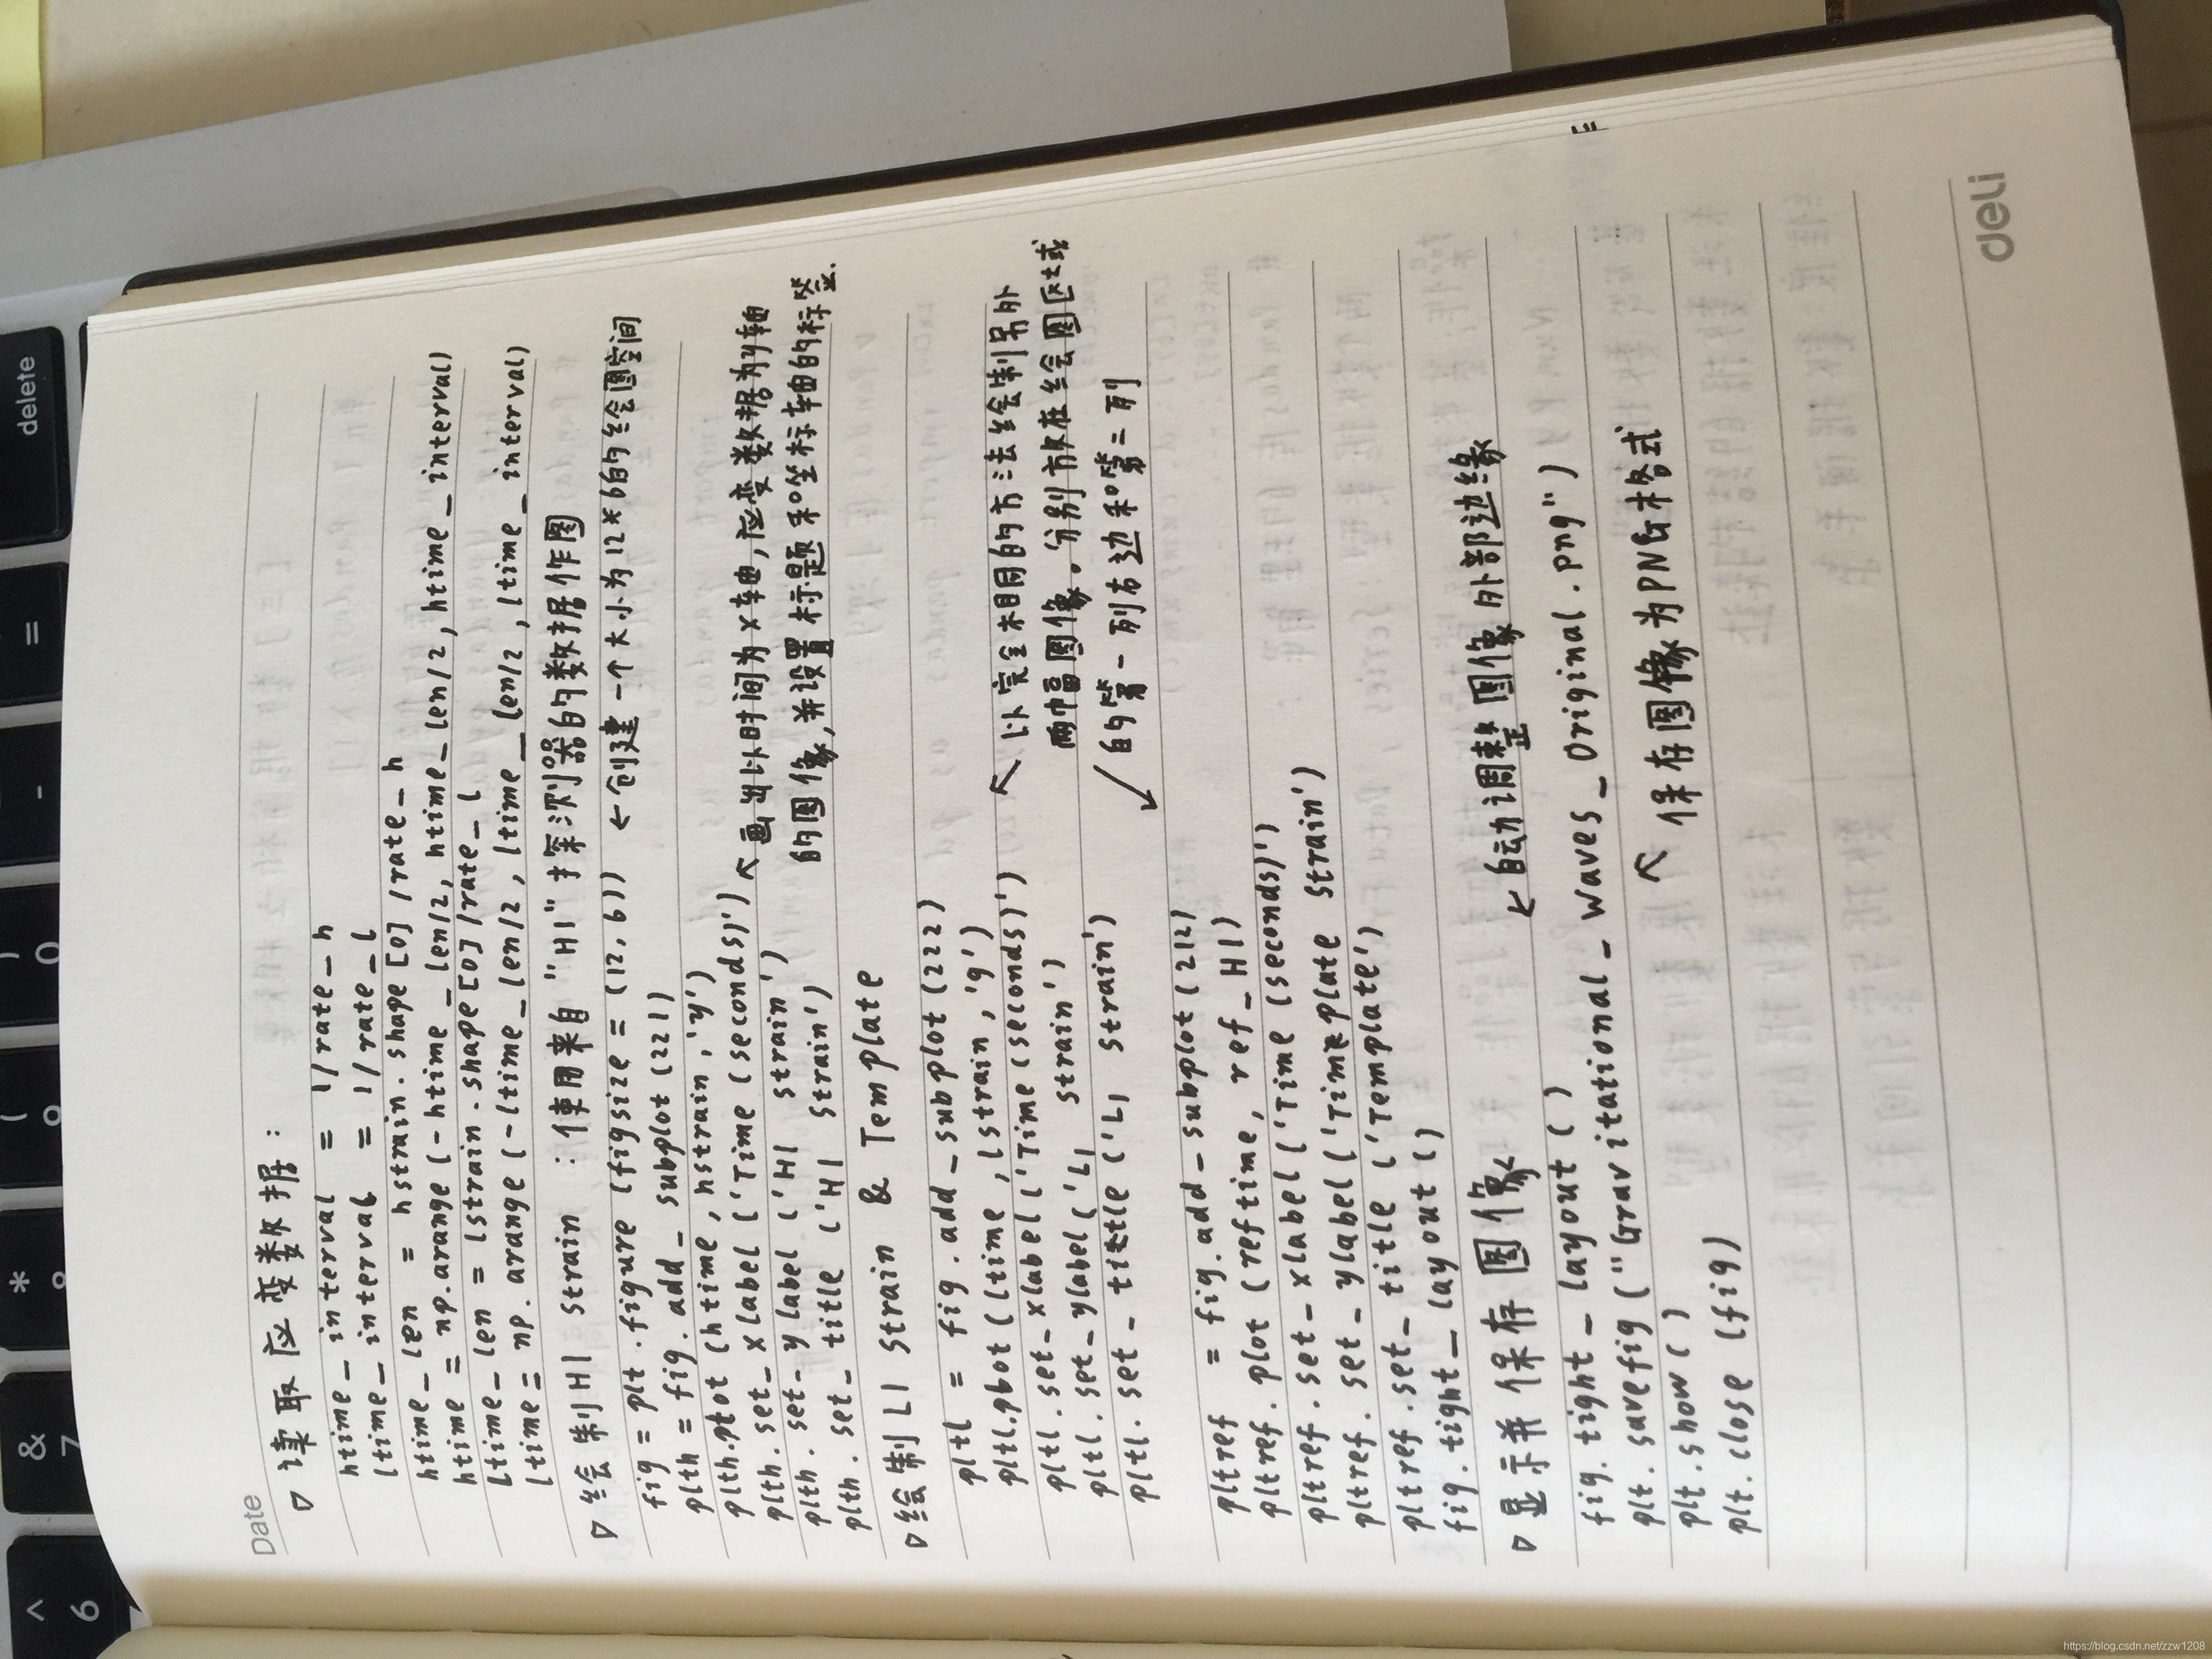 Date
▷ 读取应变数据：
htime_interval = 1/rate_h
ltime_interval = 1/rate_l
htime_len = hstrain.shape[0]/rate_h
htime = np.arange(-htime_len/2, htime_len/2, htime_interval)
ltime_len = lstrain.shape[0]/rate_l
ltime = np.arange(-ltime_len/2, ltime_len/2, ltime_interval)
▷ 绘制H1 strain：使用来自"H1"探测器的数据作图
fig = plt.figure(figsize=(12,6)) ←创建一个大小为12*6的绘图空间
plth = fig.add_subplot(221)
plth.plot(htime,hstrain,'y')
plth.set_xlabel('Time(seconds)') ↖画出以时间为x轴,应变数据为y轴
plth.set_ylabel('H1 strain') 的图像,并设置标题和坐标轴的标签.
plth.set_title('H1 strain')
▷绘制L1 strain & Template
pltl = fig.add_subplot(222)
pltl.plot(ltime,lstrain,'g')
pltl.set_xlabel('Time(seconds)') ↖ 以完全相同的方法绘制另外
pltl.set_ylabel('L1 strain') 两幅图像。分别放在绘图区域
pltl.set_title('L1 strain') ↙的第一列右边和第二列
pltref = fig.add_subplot(212)
pltref.plot(reftime, ref_H1)
pltref.set_xlabel('Time(seconds)')
pltref.set_ylabel('Template strain')
pltref.set_title('Template')
fig.tight_layout() ←自动调整图像外部边缘
▷显示并保存图像
fig.tight_layout()
plt.savefig("Gravitational_Waves_Original.png")
plt.show() ↖ 保存图像为PNG格式
plt.close(fig)
deli
delete
=
-
)
0
(
*
&
7
^
6
https://blog.csdn.net/zzw1208